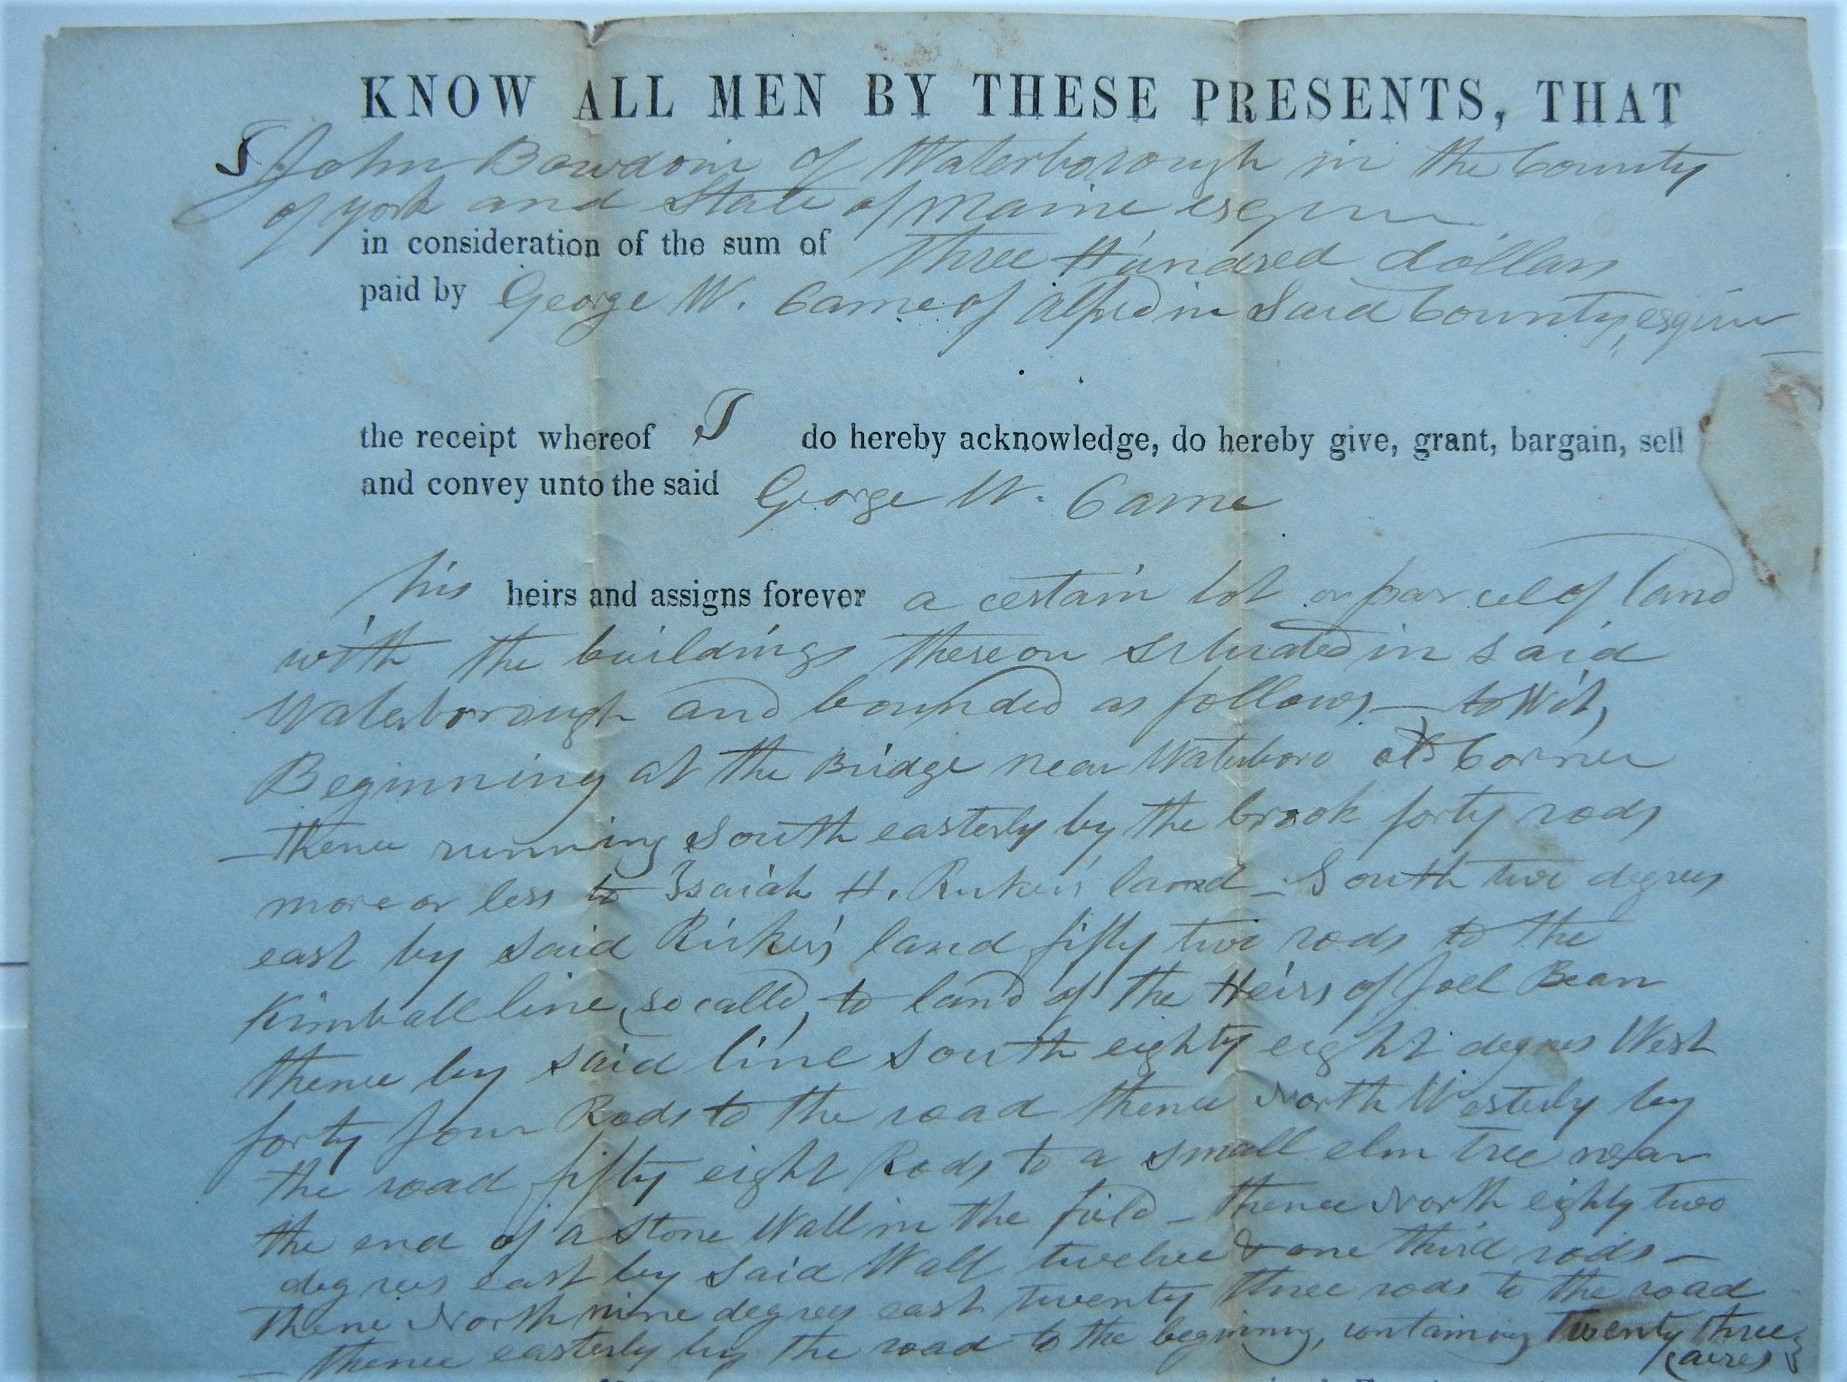 KNOW ALL MEN BY THESE PRESENTS, THAT
I John Bowdoin of Waterborough in the County
of york and State of Maine esquire
in consideration of the sum of Three Hundred dollars
paid by George W. Came of Alfred in Said County, esquire
the receipt whereof I do hereby acknowledge, do hereby give, grant, bargain, sell
and convey unto the said George W. Came
his heirs and assigns forever a certain lot or parcel of land
with the buildings thereon situated in said
Waterborough and bounded as follows - to Wit,
Beginning at the Bridge near Waterboro old Corner
- thence running South easterly by the brook forty rods
more or less to Isaiah H. Ricker's land - South two degrees
east by said Ricker's land fifty two rods to the
Kimball line, so called, to land of the Heirs of Joel Bean
thence by said line South eighty eight degrees West
forty four Rods to the road thence North Westerly by
the road fifty eight Rods to a small elm tree near
the end of a stone Wall in the field - thence North eighty two
degrees east by said Wall twelve & one third rods -
thence North nine degrees east twenty three rods to the road
- thence easterly by the road to the begining, containing Twenty three
acres